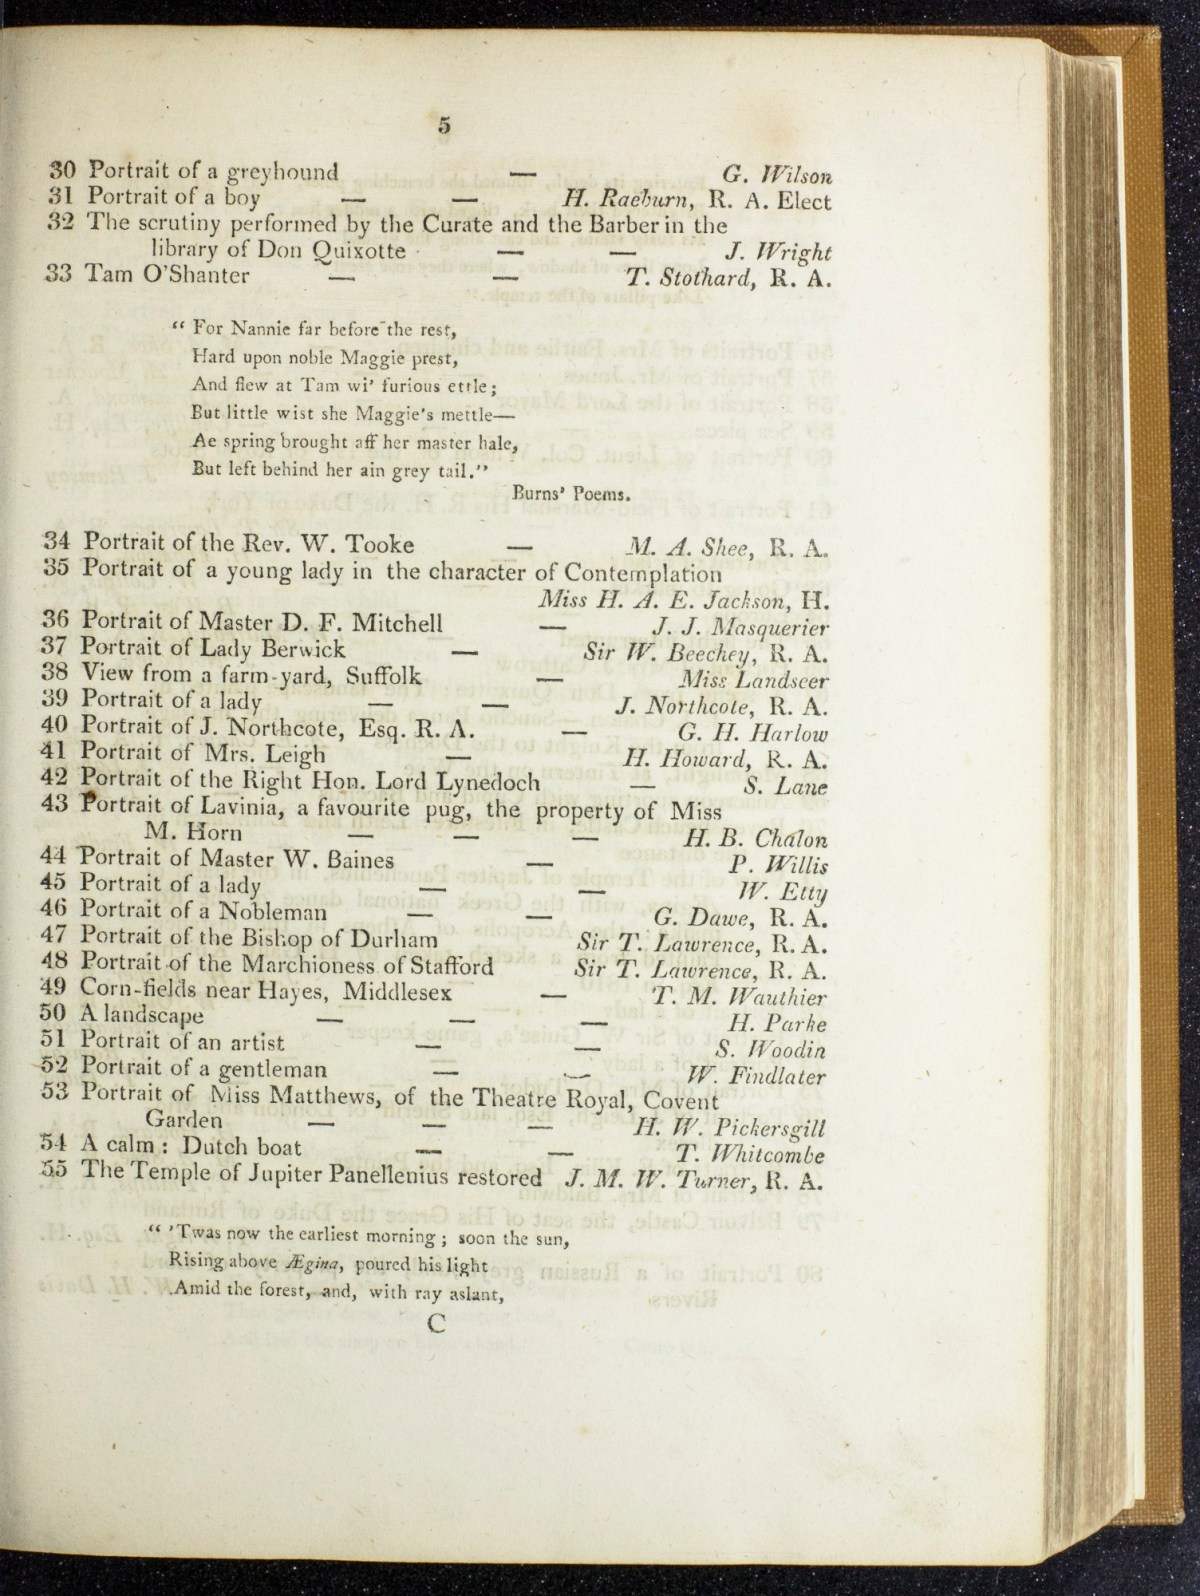 5
30 Portrait of a greyhound — G. Wilson
31 Portrait of a boy — — H. Raeburn, R. A. Elect
32 The scrutiny performed by the Curate and the Barber in the
library of Don Quixotte — — J. Wright
33 Tam O'Shanter — — T. Stothard, R. A.
“ For Nannie far before the rest,
Hard upon noble Maggie prest,
And flew at Tam wi' furious ettle;
But little wist she Maggie's mettle—
Ae spring brought aff her master hale,
But left behind her ain grey tail.”
Burns' Poems.
34 Portrait of the Rev. W. Tooke — M. A. Shee, R. A.
35 Portrait of a young lady in the character of Contemplation
Miss H. A. E. Jackson, H.
36 Portrait of Master D. F. Mitchell — J. J. Masquerier
37 Portrait of Lady Berwick — Sir W. Beechey, R. A.
38 View from a farm-yard, Suffolk — Miss Landseer
39 Portrait of a lady — — J. Northcote, R. A.
40 Portrait of J. Northcote, Esq. R. A. — G. H. Harlow
41 Portrait of Mrs. Leigh — H. Howard, R. A.
42 Portrait of the Right Hon. Lord Lynedoch — S. Lane
43 Portrait of Lavinia, a favourite pug, the property of Miss
M. Horn — — — H. B. Chalon
44 Portrait of Master W. Baines — P. Willis
45 Portrait of a lady — — W. Etty
46 Portrait of a Nobleman — — G. Dawe, R. A.
47 Portrait of the Bishop of Durham Sir T. Lawrence, R. A.
48 Portrait of the Marchioness of Stafford Sir T. Lawrence, R. A.
49 Corn-fields near Hayes, Middlesex — T. M. Wauthier
50 A landscape — — — H. Parke
51 Portrait of an artist — — S. Woodin
52 Portrait of a gentleman — — W. Findlater
53 Portrait of Miss Matthews, of the Theatre Royal, Covent
Garden — — — H. W. Pickersgill
54 A calm : Dutch boat — — T. Whitcombe
55 The Temple of Jupiter Panellenius restored J. M. W. Turner, R. A.
“ 'Twas now the earliest morning ; soon the sun,
Rising above Ægina, poured his light
Amid the forest, and, with ray aslant,
C